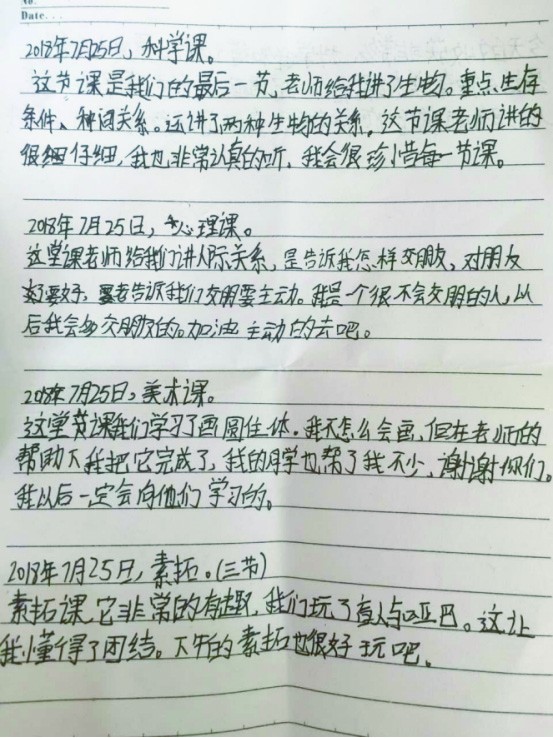 No.
Date. . .
2018年7月25日，科学课。
这节课是我们的最后一节，老师给我讲了生物。重点、生存
条件、种间关系。还讲了两种生物的关系。这节课老师讲的
很细仔细，我也非常认真的听，我会很珍惜每一节课。
2018年7月25日，心理课。
这堂课老师给我们讲人际关系，是告诉我怎样交朋友，对朋友
要好，老告诉我们交朋要主动。我是一个很不会交朋的人，以
后我会多交朋友的。加油主动的去吧。
2018年7月25日，美术课。
这堂节课我们学习了画圆住体。我不怎么会画，但在老师的
帮助下我把它完成了，我的同学也帮了我不少，谢谢你们。
我以后一定会向他们学习的。
2018年7月25日，素拓。(三节)
素拓课，它非常的有趣，我们玩了盲人与哑巴。这让
我懂得了团结。下午的素拓也很好玩吧。